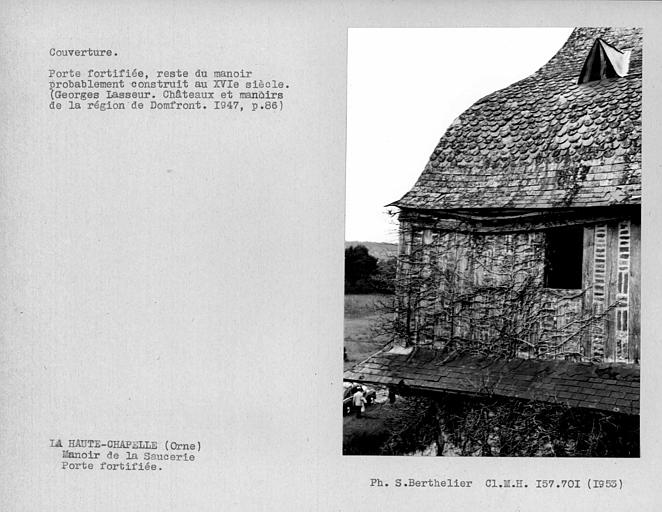 Couverture.
Porte fortifiée, reste du manoir
probablement construit au XVIe siècle.
(Georges Lasseur. Châteaux et manoirs
de la région de Domfront. I947, p.86)
LA HAUTE-CHAPELLE (Orne)
Manoir de la Saucerie
Porte fortifiée.
Ph. S.Berthelier Cl.M.H. I57.70I (I953)